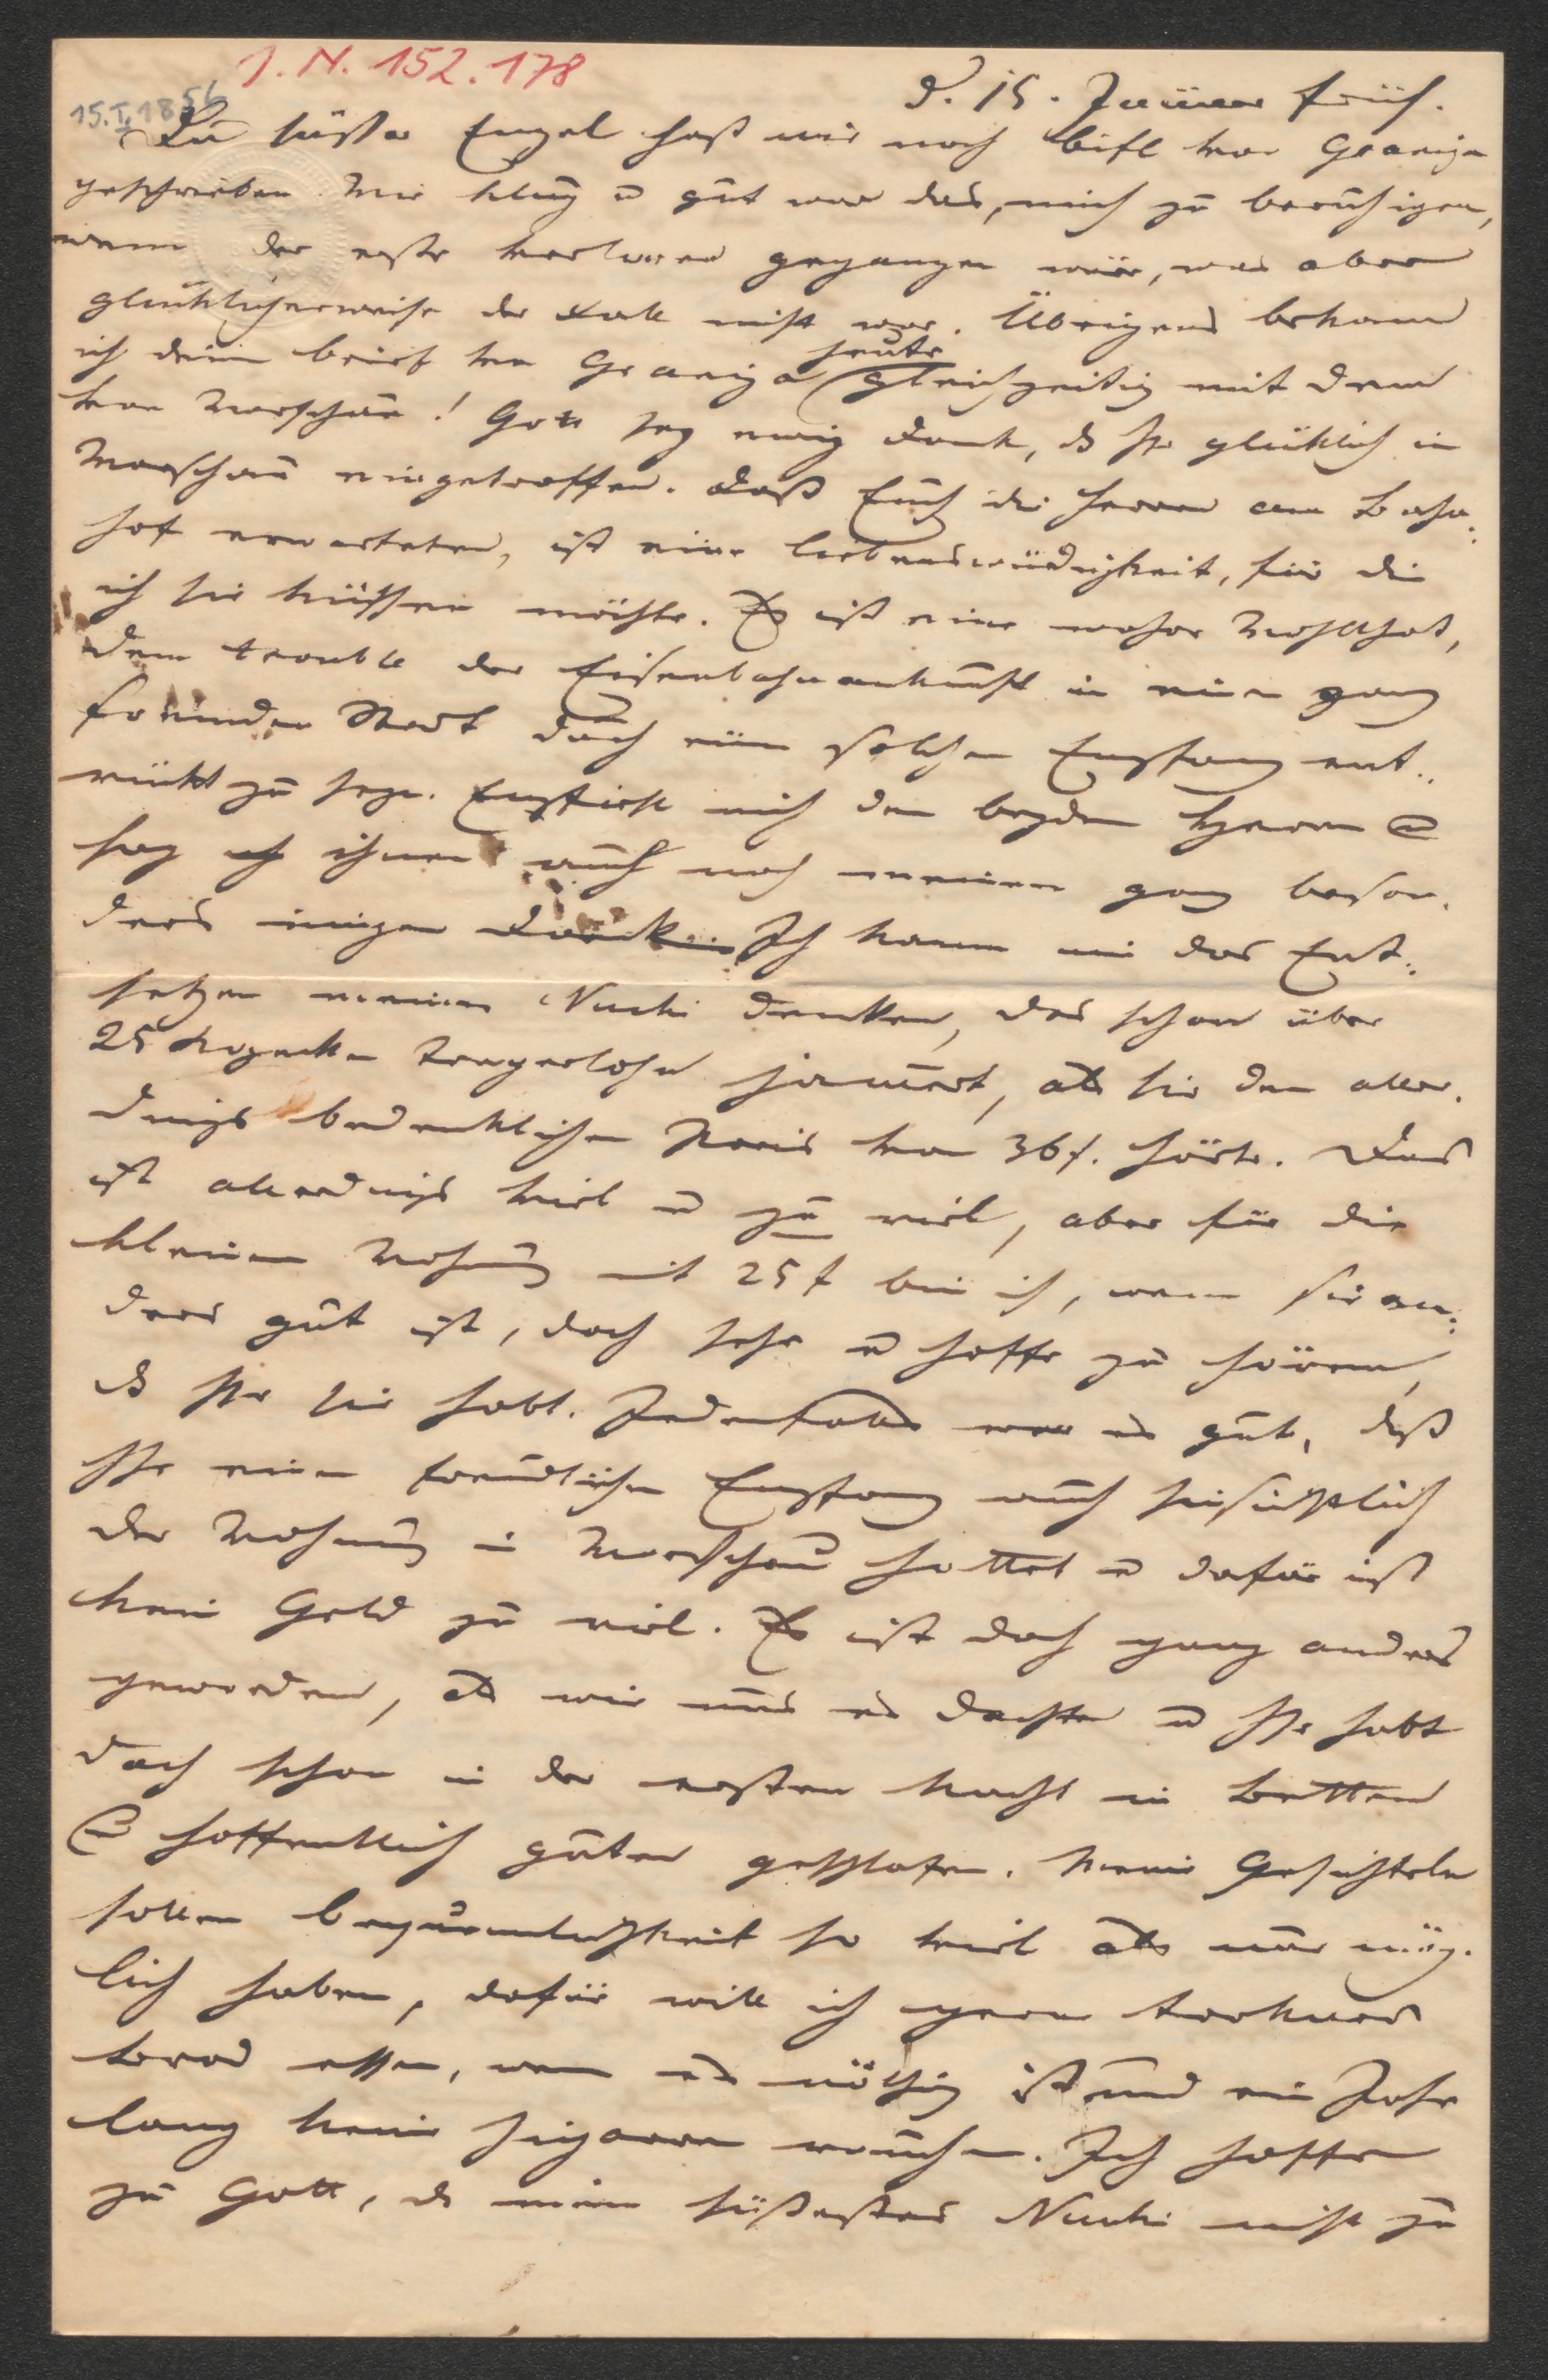 J. N. 152.178
15.I.1856
d. 15. Jänner früh.
Du süßer Engel hast mir noch bißl von Graniza
geschrieben. Wie klug u gut war das, mich zu beruhigen,
wenn der erste verloren gegangen wäre, was aber
glücklicherweise der Fall nicht war. Übrigens bekam
ich dein brief von Graniza heute gleichzeitig mit dem
von Warschau! Gott sey ewig Dank, dß Ihr glücklich in
Warschau eingetroffen. Daß Euch die Herren am Bahn:
hof erwarteten, ist eine liebenswürdigkeit, für die
ich sie küssen möchte. Es ist eine wahre Wohlthat,
dem trouble der Eisenbahnankunft in einer ganz
fremden Stadt durch einen solchen Empfang ent:
rückt zu seyn. Empfiehl mich den beyden Herrn u
sag ihnen auch noch meinen ganz beson.
ders innigen Dank. Ich kann mir das Ent:
setzen meines Nucki denken, das schon über
25 Kopecken Trägerlohn jammert, als sie den aller.
dings bedenklichen Preis von 36 f. hörte. Das
ist allerdings viel u zu viel, aber für die
kleine Wohnung mit 25 f bin ich, wenn sie an:
ders gut ist, doch sehr u hoffe zu hören,
dß Ihr sie habt. Jedenfalls war es gut, daß
Ihr einen freundlichen Empfang auch hinsichtlich
der Wohnung in Warschau hattet u dafür ist
kein Geld zu viel. Es ist doch ganz anders
geworden, als wir uns es dachten u Ihr habt
doch schon in der ersten Nacht in Betten
u hoffentlich guten geschlafen. Meine Gesichteln
sollen bequemlichkeit so viel als nur mög.
lich haben, dafür will ich gern trockenes
brod essen, wenn es nöthig ist und ein Jahr
lang keine Zigarren rauchen. Ich hoffe
zu Gott, dß mein süßestes Nucki nicht zu